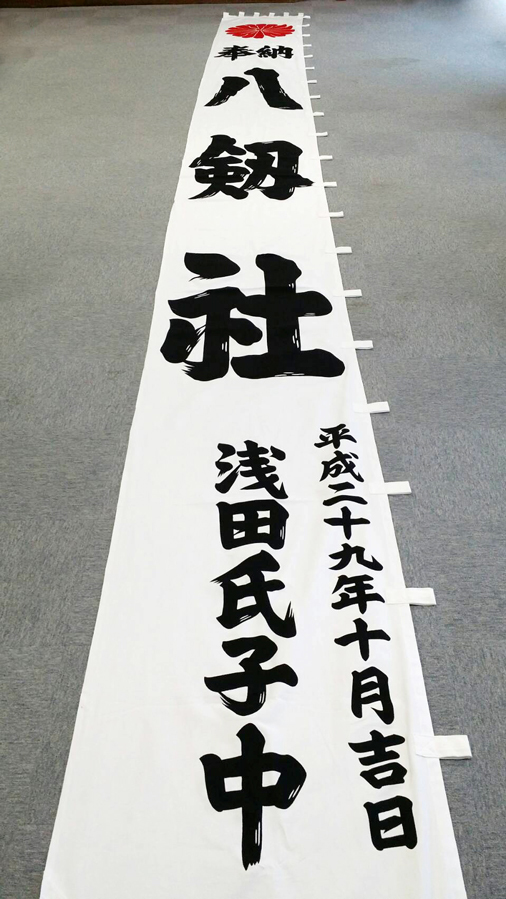 奉納
八剱社
平成二十九年十月吉日
浅田氏子中